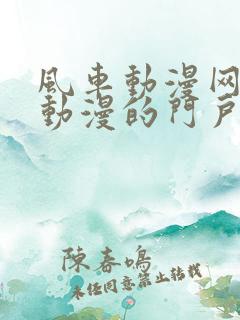 風車動漫网
動漫的門戶
陳春鳴
未经同意禁止转载